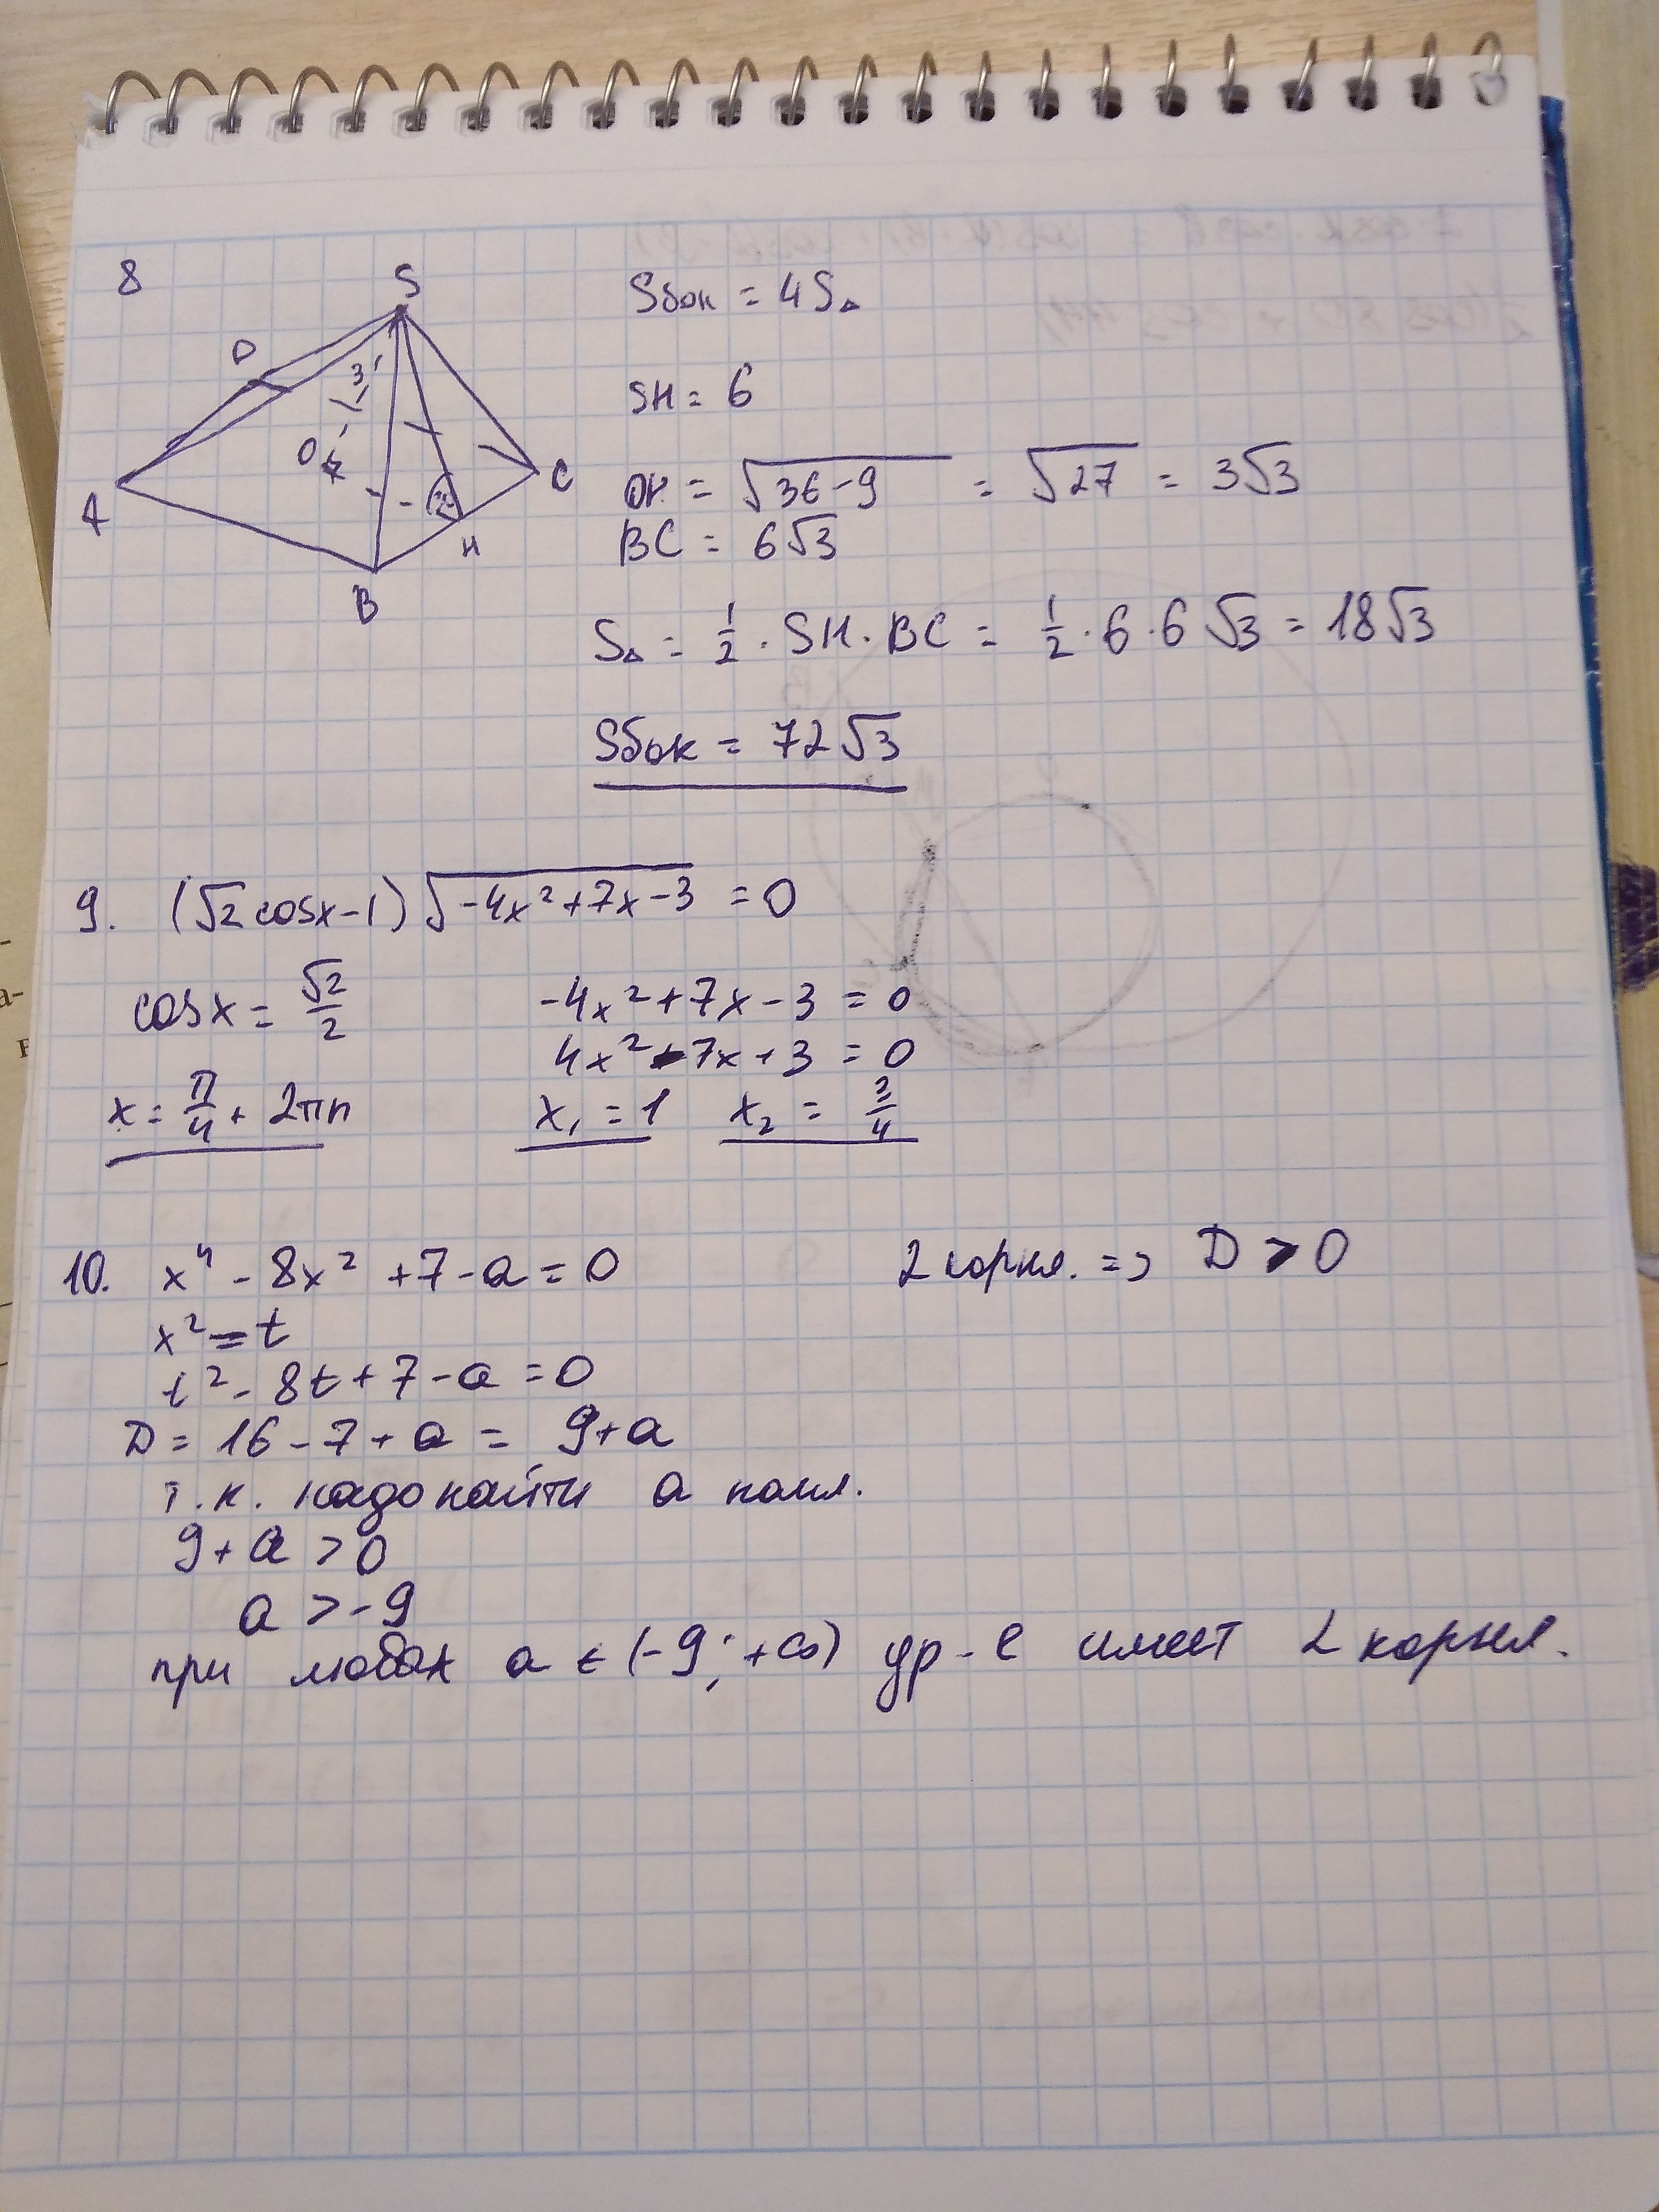 8
S
D
3
O
A
C
H
B
Sбок = 4S△
SH = 6
OH = √36-9 = √27 = 3√3
BC = 6√3
S△ = 1/2 · SH · BC = 1/2 · 6 · 6√3 = 18√3
Sбок = 72√3
9. (√2 cosx - 1) √-4x²+7x-3 = 0
cosx = √2/2
-4x²+7x-3 = 0
4x²-7x+3 = 0
x = π/4 + 2πn
x₁ = 1 x₂ = 3/4
10. x⁴ - 8x² + 7 - a = 0
2 корня. => D > 0
x² = t
t² - 8t + 7 - a = 0
D = 16 - 7 + a = 9+a
т.к. надо найти a
9 + a > 0
a > -9
при любых a ∈ (-9; +∞) ур-е имеет 2 корня.